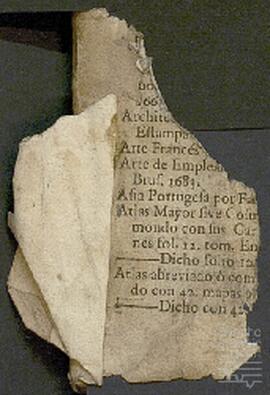 Archite
Estampa
Arte Frances
Arte de Emplea
Brus. 1683.
Asia Portugesa por Fa
Atlas Mayor sive Cosm
mondo con sus Car
nes fol. 12. tom. En
Dicho folio 10
Atlas abreviado ó com
do con 42. mapas
Dicho con 42